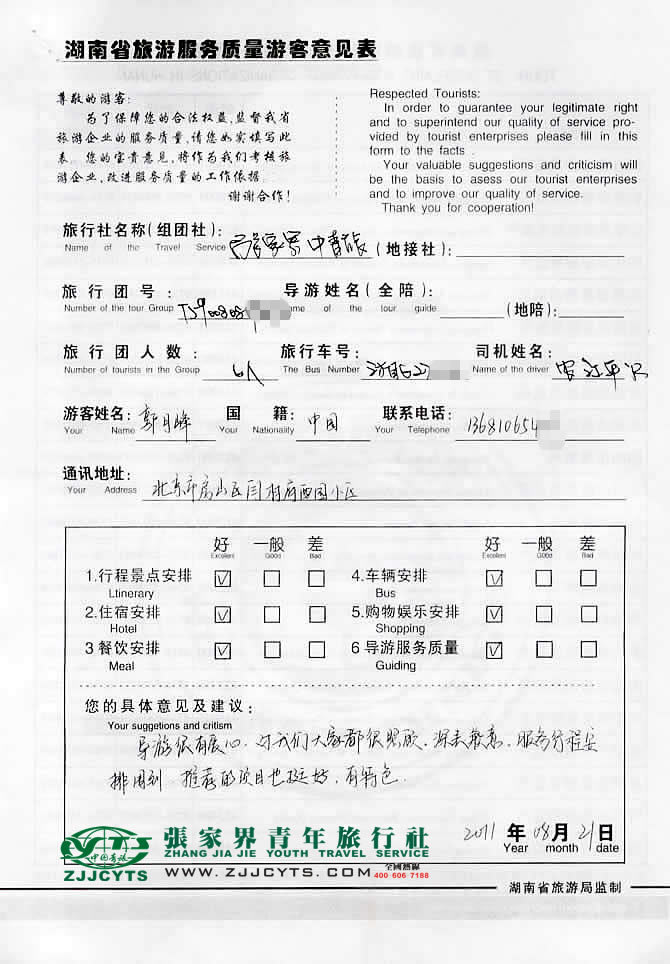 湖南省旅游服务质量游客意见表
尊敬的游客:
为了保障您的合法权益,监督我省
旅游企业的服务质量,请您如实填写此
表。您的宝贵意见,将作为我们考核旅
游企业,改进服务质量的工作依据。
谢谢合作!
Respected Tourists:
In order to guarantee your legitimate right
and to superintend our quality of service pro-
vided by tourist enterprises please fill in this
form to the facts .
Your valuable suggestions and criticism will
be the basis to asess our tourist enterprises
and to improve our quality of service.
Thank you for cooperation!
旅行社名称(组团社): 张家界中青旅 (地接社):
Name of the Travel Service
旅行团号: 导游姓名(全陪): (地陪):
Number of the tour Group ame of the tour guide
旅行团人数: 6人 旅行车号: 司机姓名:
Number of tourists in the Group The Bus Number Name of the driver
游客姓名: 郭月峰 国籍: 中国 联系电话: 136810654
Your Name Your Nationality Your Telephone
通讯地址: 北京市房山区闫村府西园小区
Your Address
好 一般 差 好 一般 差
Excellent Good Bad Excellent Good Bad
1.行程景点安排 4.车辆安排
Ltinerary Bus
2.住宿安排 5.购物娱乐安排
Hotel Shopping
3 餐饮安排 6 导游服务质量
Meal Guiding
您的具体意见及建议:
Your suggetions and critism
导游很有 心,对我们大家都很照顾,深表敬意,服务行程安
排周到,推荐的项目也挺好,有特色.
2011 年 08 月 21 日
Year month date
張家界青年旅行社
ZHANG JIA JIE YOUTH TRAVEL SERVICE
CYTS
中国青旅
ZJJCYTS
WWW.ZJJCYTS.COM 全國熱線
400-606-7188
湖南省旅游局监制